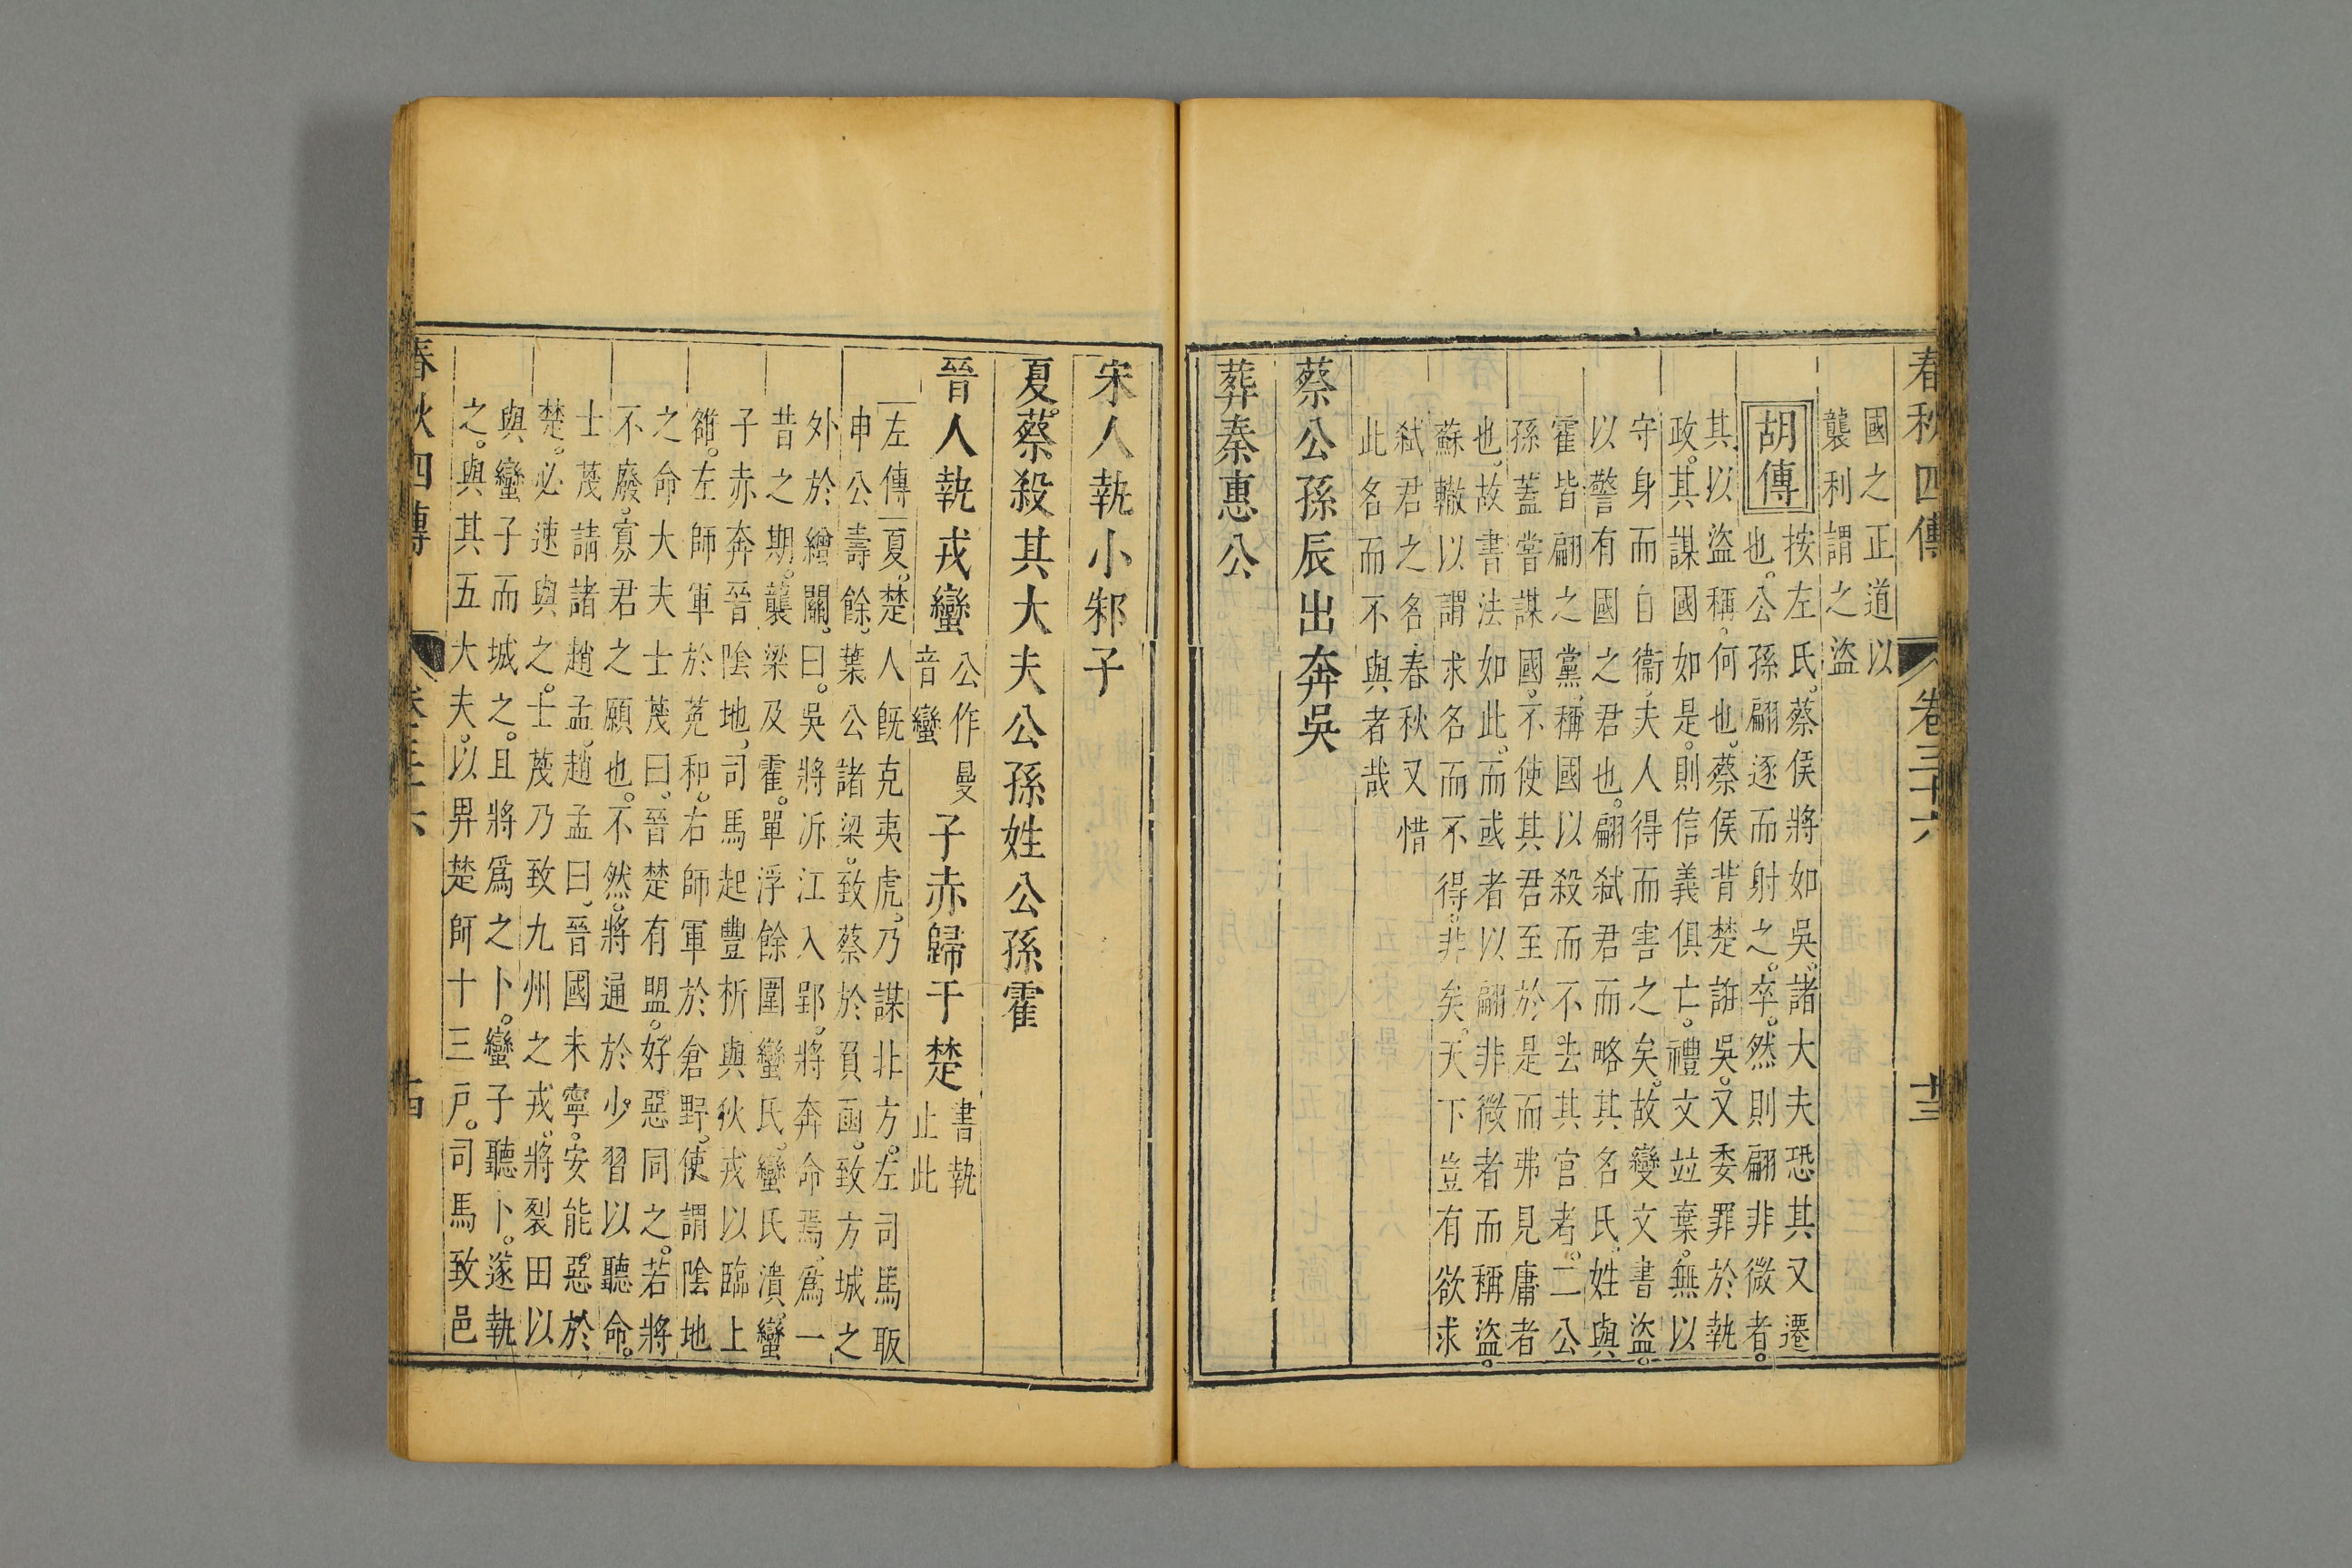 春秋四傳 卷三十六 十三
國之正道以
襲利謂之盜
胡傳
按左氏蔡侯將如吳諸大夫恐其又遷
也公孫翩逐而射之卒然則翩非微者
其以盜稱何也蔡侯背楚誑吳又委罪於執
政其謀國如是則信義俱亡禮文竝棄無以
守身而自衞夫人得而害之矣故變文書盜
以警有國之君也翩弑君而略其名氏姓與
霍皆翩之黨稱國以殺而不去其官者二公
孫蓋嘗謀國不使其君至於是而弗見庸者
也故書法如此而或者以翩非微者而稱盜
蘇轍以謂求名而不得非矣天下豈有欲求
弑君之名春秋又惜
此名而不與者哉
蔡公孫辰出奔吳
葬秦惠公
宋人執小邾子
夏蔡殺其大夫公孫姓公孫霍
晉人執戎蠻公作曼音蠻子赤歸于楚書執止此
左傳夏楚人旣克夷虎乃謀北方左司馬販
申公壽餘葉公諸梁致蔡於負函致方城之
外於繒關曰吳將泝江入郢將奔命焉爲一
昔之期襲梁及霍單浮餘圍蠻氏蠻氏潰蠻
子赤奔晉陰地司馬起豐析與狄戎以臨上
雒左師軍於菟和右師軍於倉野使謂陰地
之命大夫士蔑曰晉楚有盟好惡同之若將
不廢寡君之願也不然將通於少習以聽命
士蔑請諸趙孟趙孟曰晉國未寧安能惡於
楚必速與之士蔑乃致九州之戎將裂田以
與蠻子而城之且將爲之卜蠻子聽卜遂執
之與其五大夫以畀楚師于三戸司馬致邑
春秋四傳 卷三十六 十四